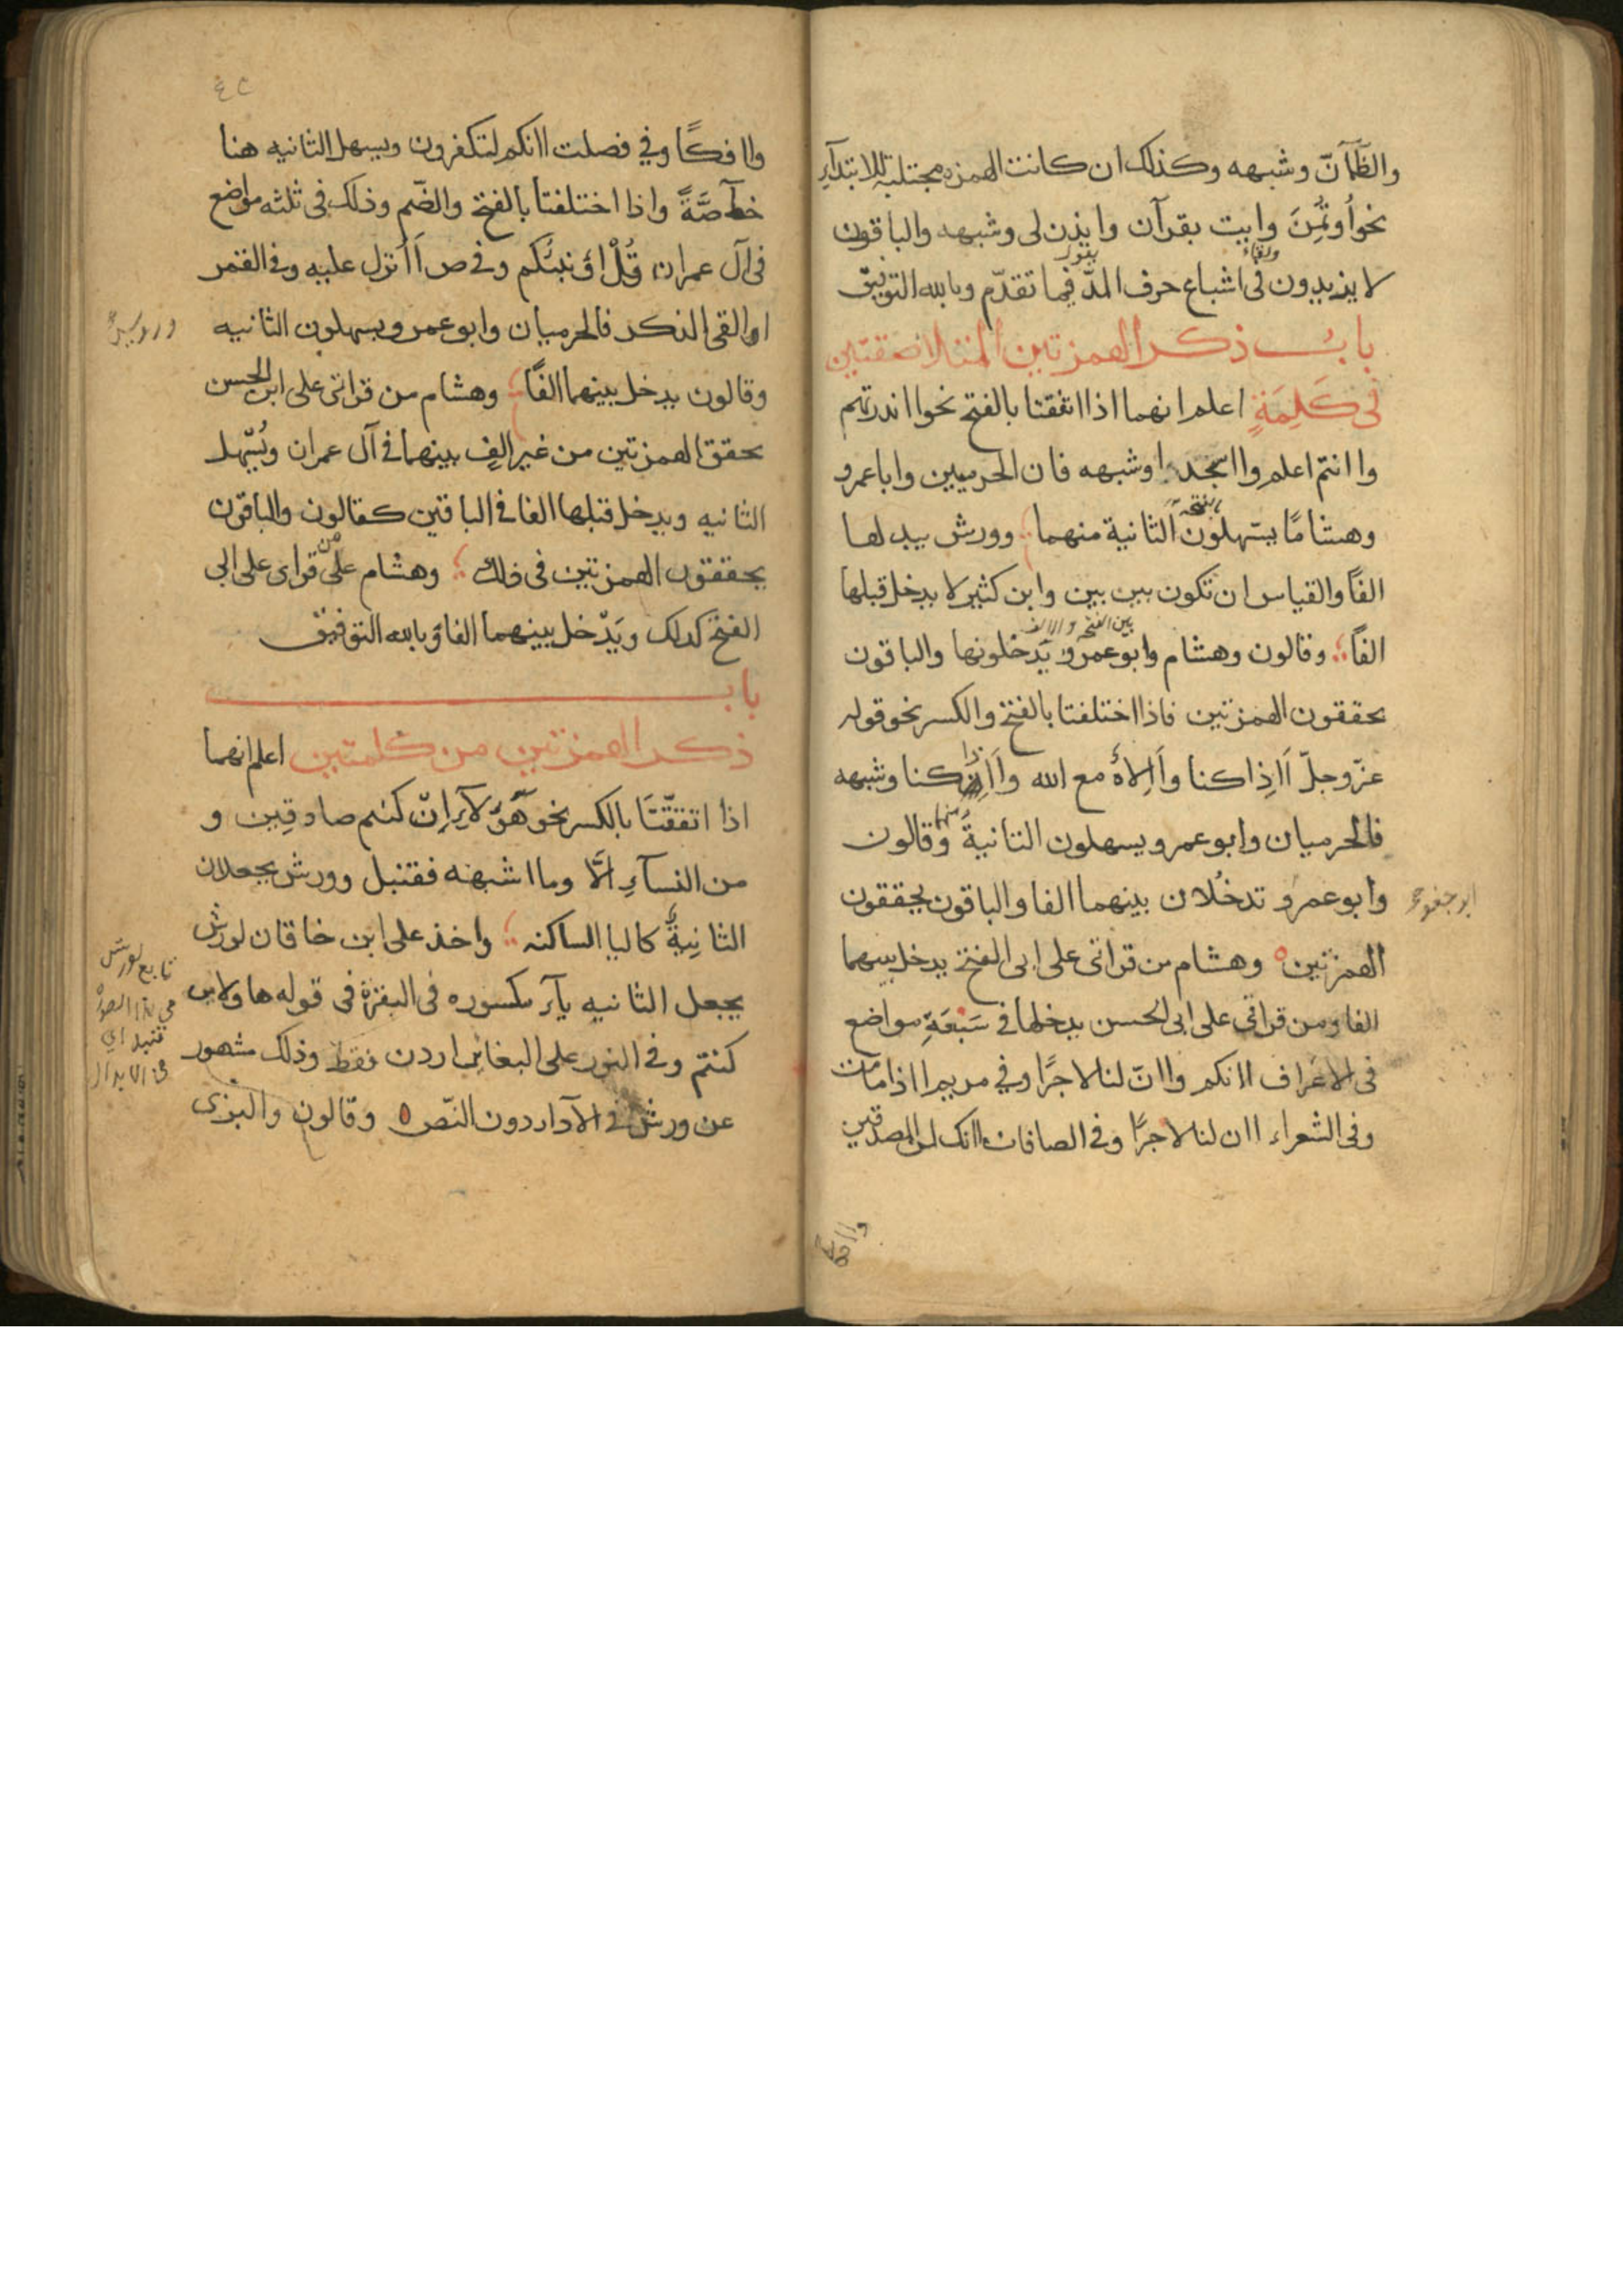 والظمآنّ وشبهه وكذلك ان كانت الهمزه مجتلبة للابتدآء
نحو اُوتُمِنَ وايت بقرآن وايذن لى وشبهه والباقون
لا يزيدون فى اشباع حرف المدّ فيما تقدّم وبالله التوفيق
بابُ ذكر الهمزتين المتلاصقتين
فى كَلِمَةٍ اعلم انهما اذا اتفقتا بالفتح نحو اانذرتهم
واانتم اعلم وااسجد وشبهه فان الحرميين واباعمرو
وهشامًا يسهلون الثانية منهما وورش يبدلها
الفًا والقياس ان تكون بين بين وابن كثير لا يدخل قبلها
الفًا وقالون وهشام وابوعمرو يدخلونها والباقون
يحققون الهمزتين فاذا اختلفتا بالفتح والكسر نحو قوله
عزّ وجلّ أاِذا كنا وأاِلاهٌ مع الله وأاِذا كنا وشبهه
فالحرميان وابوعمرو يسهلون الثانيةَ منهما وقالون
وابوعمرو تدخلان بينهما الفا والباقون يحققون
ابو جعفر
الهمزتين وهشام من قراتى على ابى الفتح يدخل بينهما
الفا ومن قراتى على ابى الحسن يدخلها فى سَبْعَةِ مواضع
فى الاعراف اانكم واانّ لنا لاجرًا وفي مريم ااذا مامت
وفى الشعراء اان لنا لاجرًا وفى الصافات اانك لمن المصدقين
واافكا
٤٢
واافكًا وفي فصلت اانكم لتكفرون ويسهل الثانيه هنا
خآصَّةً واذا اختلفتا بالفتح والضّم وذلك فى ثلثه مواضع
فى آل عمران قُلْ اؤنبئكم وفى ص أاُنزل عليه وفى القمر
االقى الذكر فالحرميان وابوعمرو يسهلون الثانيه
ورويس
وقالون يدخل بينهما الفًا وهشام من قراتى على ابى الحسن
يحقق الهمزتين من غير الفٍ بينهما فى آل عمران ويُسَهّل
الثانيه ويدخل قبلها الفا فى الباقين كقالون والباقون
يحققون الهمزتين فى ذلك وهشام من قراى على ابى
الفتح كذلك ويَدْخل بينهما الفا وبالله التوفيق
باب
ذكر الهمزتين من كلمتين اعلم انهما
اذا اتفقَتَا بالكسر نحو هَؤلآءِ اِنّ كنتم صادقين و
من النسآءِ الَّا وما اشبهه فقنبل وورش يجعلان
الثانِيةَ كاليا الساكنه واخذ على ابن خاقان لورش
يجعل الثانيه يآء مكسوره فى البقرة فى قوله هاولاءِ ان
كنتم وفى النور على البغاءِ ان اردن فقط وذلك مشهور
عن ورش فى الادآ دون النّص وقالون والبزى
تابع لورش